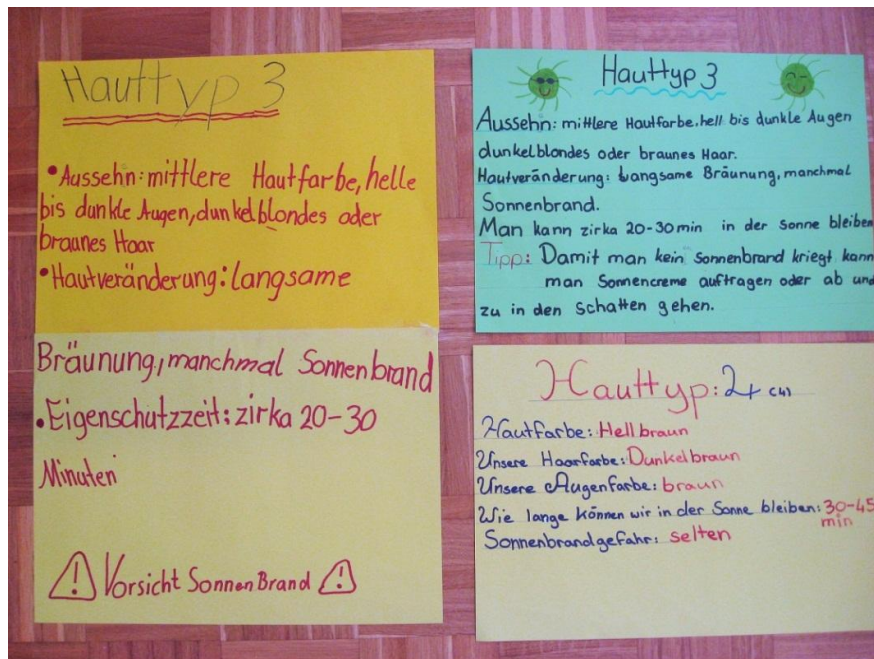 Hauttyp 3
•Aussehn: mittlere Hautfarbe, helle
bis dunkle Augen, dunkelblondes oder
braunes Haar
•Hautveränderung: langsame
Bräunung, manchmal Sonnenbrand
•Eigenschutzzeit: zirka 20-30
Minuten
Vorsicht SonnenBrand
Hauttyp 3
Aussehn: mittlere Hautfarbe, hell bis dunkle Augen
dunkelblondes oder braunes Haar.
Hautveränderung: Langsame Bräunung, manchmal
Sonnenbrand.
Man kann zirka 20-30min in der Sonne bleiben
Tipp: Damit man kein Sonnenbrand kriegt kann
man Sonnencreme auftragen oder ab und
zu in den Schatten gehen.
Hauttyp: 4 (4)
Hautfarbe: Hellbraun
Unsere Haarfarbe: Dunkelbraun
Unsere Augenfarbe: braun
Wie lange können wir in der Sonne bleiben: 30-45
min
Sonnenbrandgefahr: selten